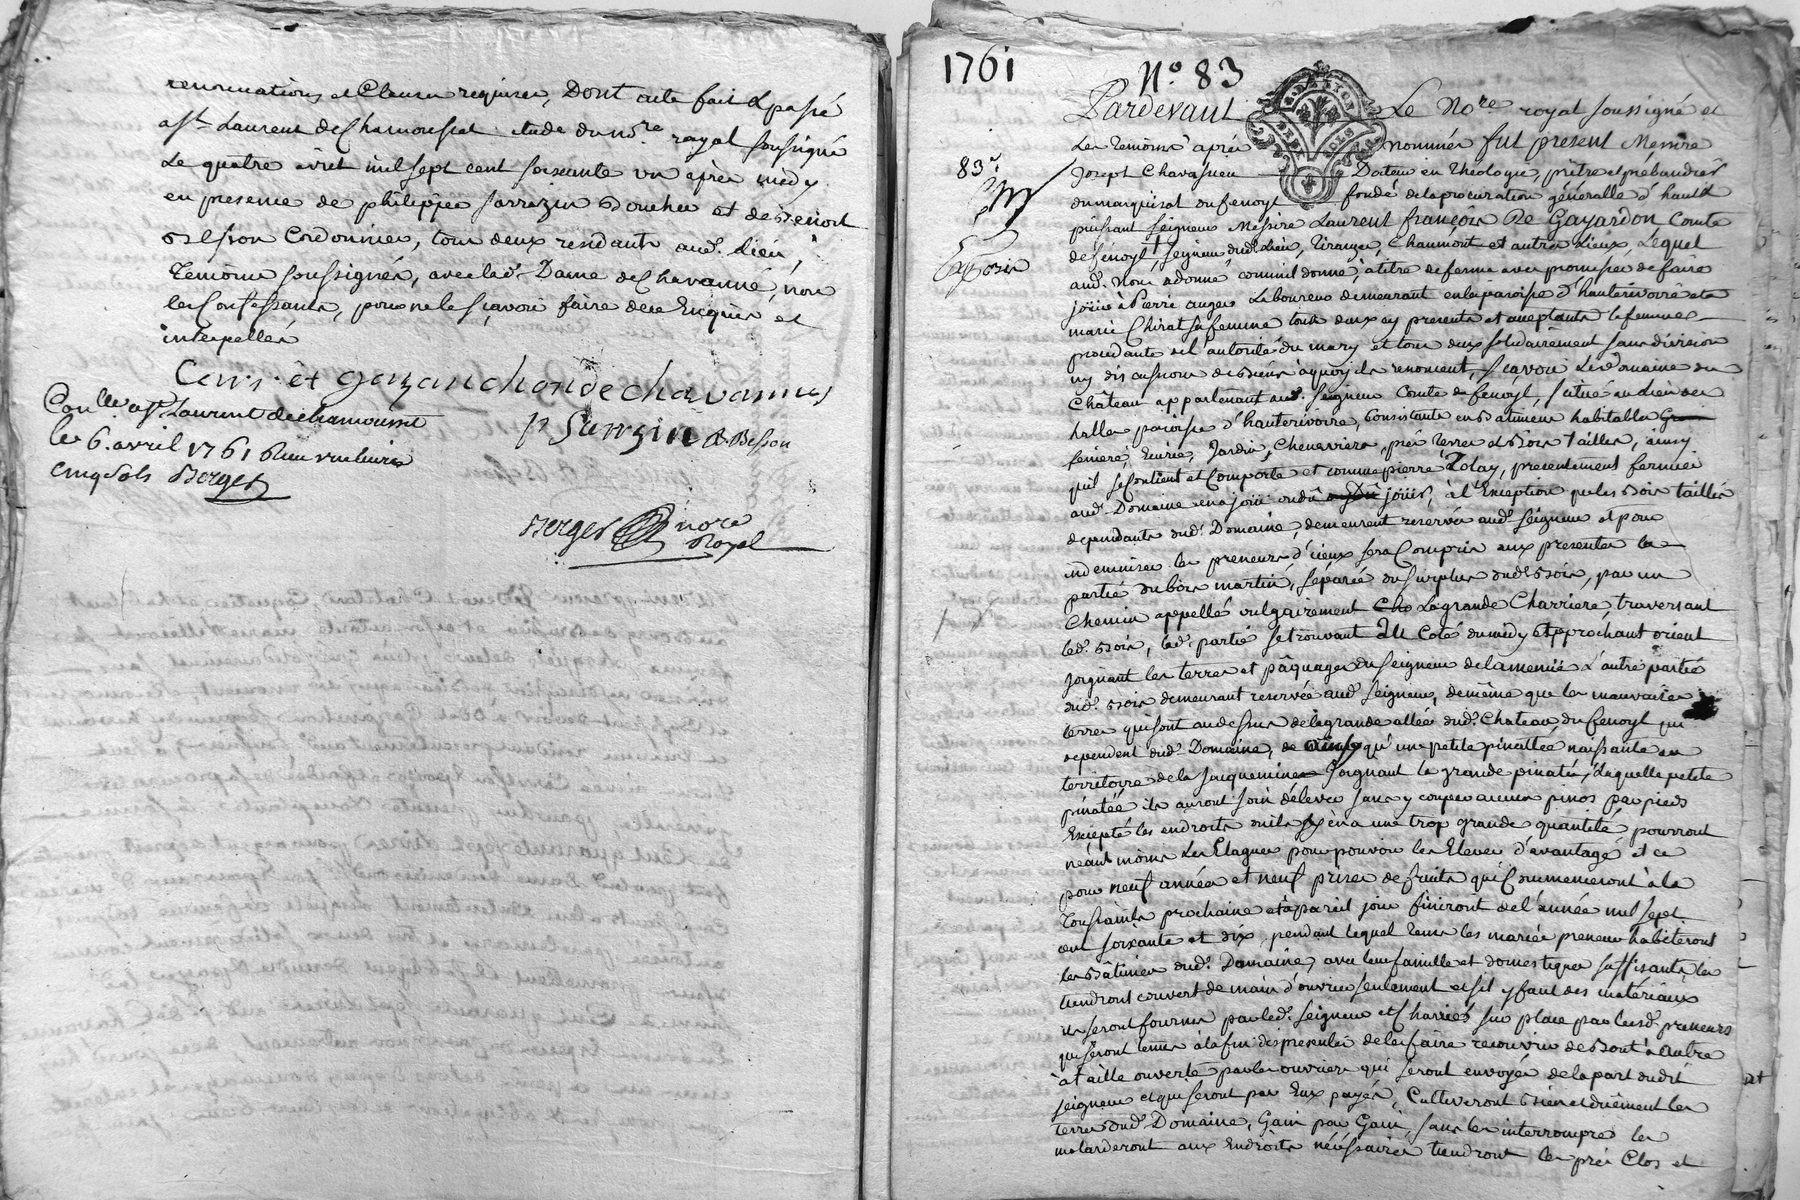 renonciations et Clauses requises, Dont acte fait & passé
a St. Laurent de Chamousset etude du nore. royal soussigné
Le quatre avril mil sept cent soixante un après midy
en presence de philippe Sarrazin Boucher et de Benoit
Besson Cordonnier, tous deux residants aud. lieu,
Temoins soussignés, avec lad. Dame de Chavanne, non
les Confessants, pour ne le sçavoir faire de ce Enquis et
interpellés
et gazanchon de chavannes
p Sarrazin B Besson
Conlle. a St. Laurent de chamousset
le 6. avril 1761
cinq sols Berger
Berger nore
Royal
1761
No. 83
Pardevant Le Nore. royal soussigné et
Les temoins après nommés fut present Messire
83e.
Joseph Chavassieu Docteur en theologie, prêtre et prébandier
du marquisat du fenoyl fondé de la procuration generalle d'hault &
puissant seigneur Messire Laurent françois De Gayardon Comte
de fenoyl seigneur dud. lieu, Tiranges, Chaumont et autres Lieux, Lequel
aud. Nom a donné comme il donne, a titre de ferme avec promesse de faire
joüir à Pierre augers Laboureur demeurant en la paroise d'hauterivoire et a
marie Chirat sa femme tous deux cy presents et acceptants la femme
procedante de l'autorité du mary et tous deux solidairement sans division
ny discussion de biens a quoy ils renoncent, sçavoir Le Domaine du
Château appartenant aud. seigneur Comte de fenoyl, situé au lieu des
halles paroise d'hauterivoire, consistants en Batiments habitables
feniere, Ecurie, Jardin, Chenevriere, prés terres et Bois taillis, ainsy
quil se Contient et Comporte et comme pierre Tolay, presentement fermier
aud. Domaine en a joüi ou dû joüir, à l'Exception que les Bois taillis
dependants dud. Domaine, demeurent reservés aud. seigneur et pour
indemniser les preneurs d'iceux sera Compris aux presentes la
partie du bois martin, séparée du surplus dud. Bois, par un
Chemin appellé vulgairement La grande Charriere, traversant
led. Bois, lad. partie se trouvant au Coté du midy et approchant orient
joignant les terres et pâquages du seigneur de lamenüe L'autre partie
dud. Bois demeurant reservée aud. seigneur, de même que les mauvaises
terres qui sont au dessus de la grande allée dud. Chateau du fenoyl qui
dependent dud. Domaine, de qu'une petite pinattée naissante au
territoire de la Jacquemine Joignant la grande pinatée, Laquelle petite
pinatée ils auront soin d'élever sans y couper aucuns pinos par pieds
Excepté les endroits ou il y en a une trop grande quantité, pourront
neant moins Les Elaguer pour pouvoir les Elever d'avantage et ce
pour neuf années et neuf prises de fruits qui Commenceront à la
Toussaints prochaine et à pareil jour finiront de l'année mil sept
cent soixante et dix, pendant lequel tems les mariés preneurs habiteront
les Bâtiments dud. Domaine, avec leur famille et domestiques suffisants, les
tiendront couvert de main d'ouvrier seulement et sil y faut des matériaux
ils seront fournis par led. seigneur et Charriés sur place par lesd. preneurs
qui seront tenus a la fin des presentes de les faire recouvrir de Bout à autre
à taille ouverte par les ouvriers qui seront envoyés de la part dudit
seigneur et qui seront par Eux payés, Cultiveront Bien et duement les
terres dud. Domaine, Gain par Gain, sans les interrompre les
molarderont aux Endroits nécéssaires tiendront les prés Clos et